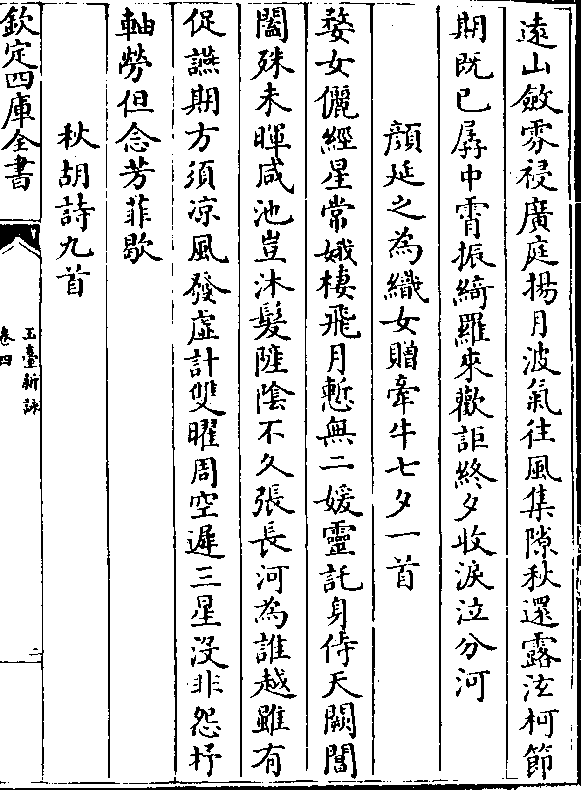 遠山斂雰祲廣庭揚月波氣往風集隙秋還露泫柯節
期既已孱中霄振綺羅來歡詎終夕收淚泣分河
顔延之為織女贈牽牛七夕一首
婺女儷經星常娥棲飛月慙無二媛靈託身侍天闕閶
闔殊未暉咸池豈沐髮陞陰不久張長河為誰越雖有
促讌期方須凉風發虛計雙曜周空遲三星没非怨杼
軸勞但念芳菲歇
秋胡詩九首
欽定四庫全書
玉臺新詠
卷四
二